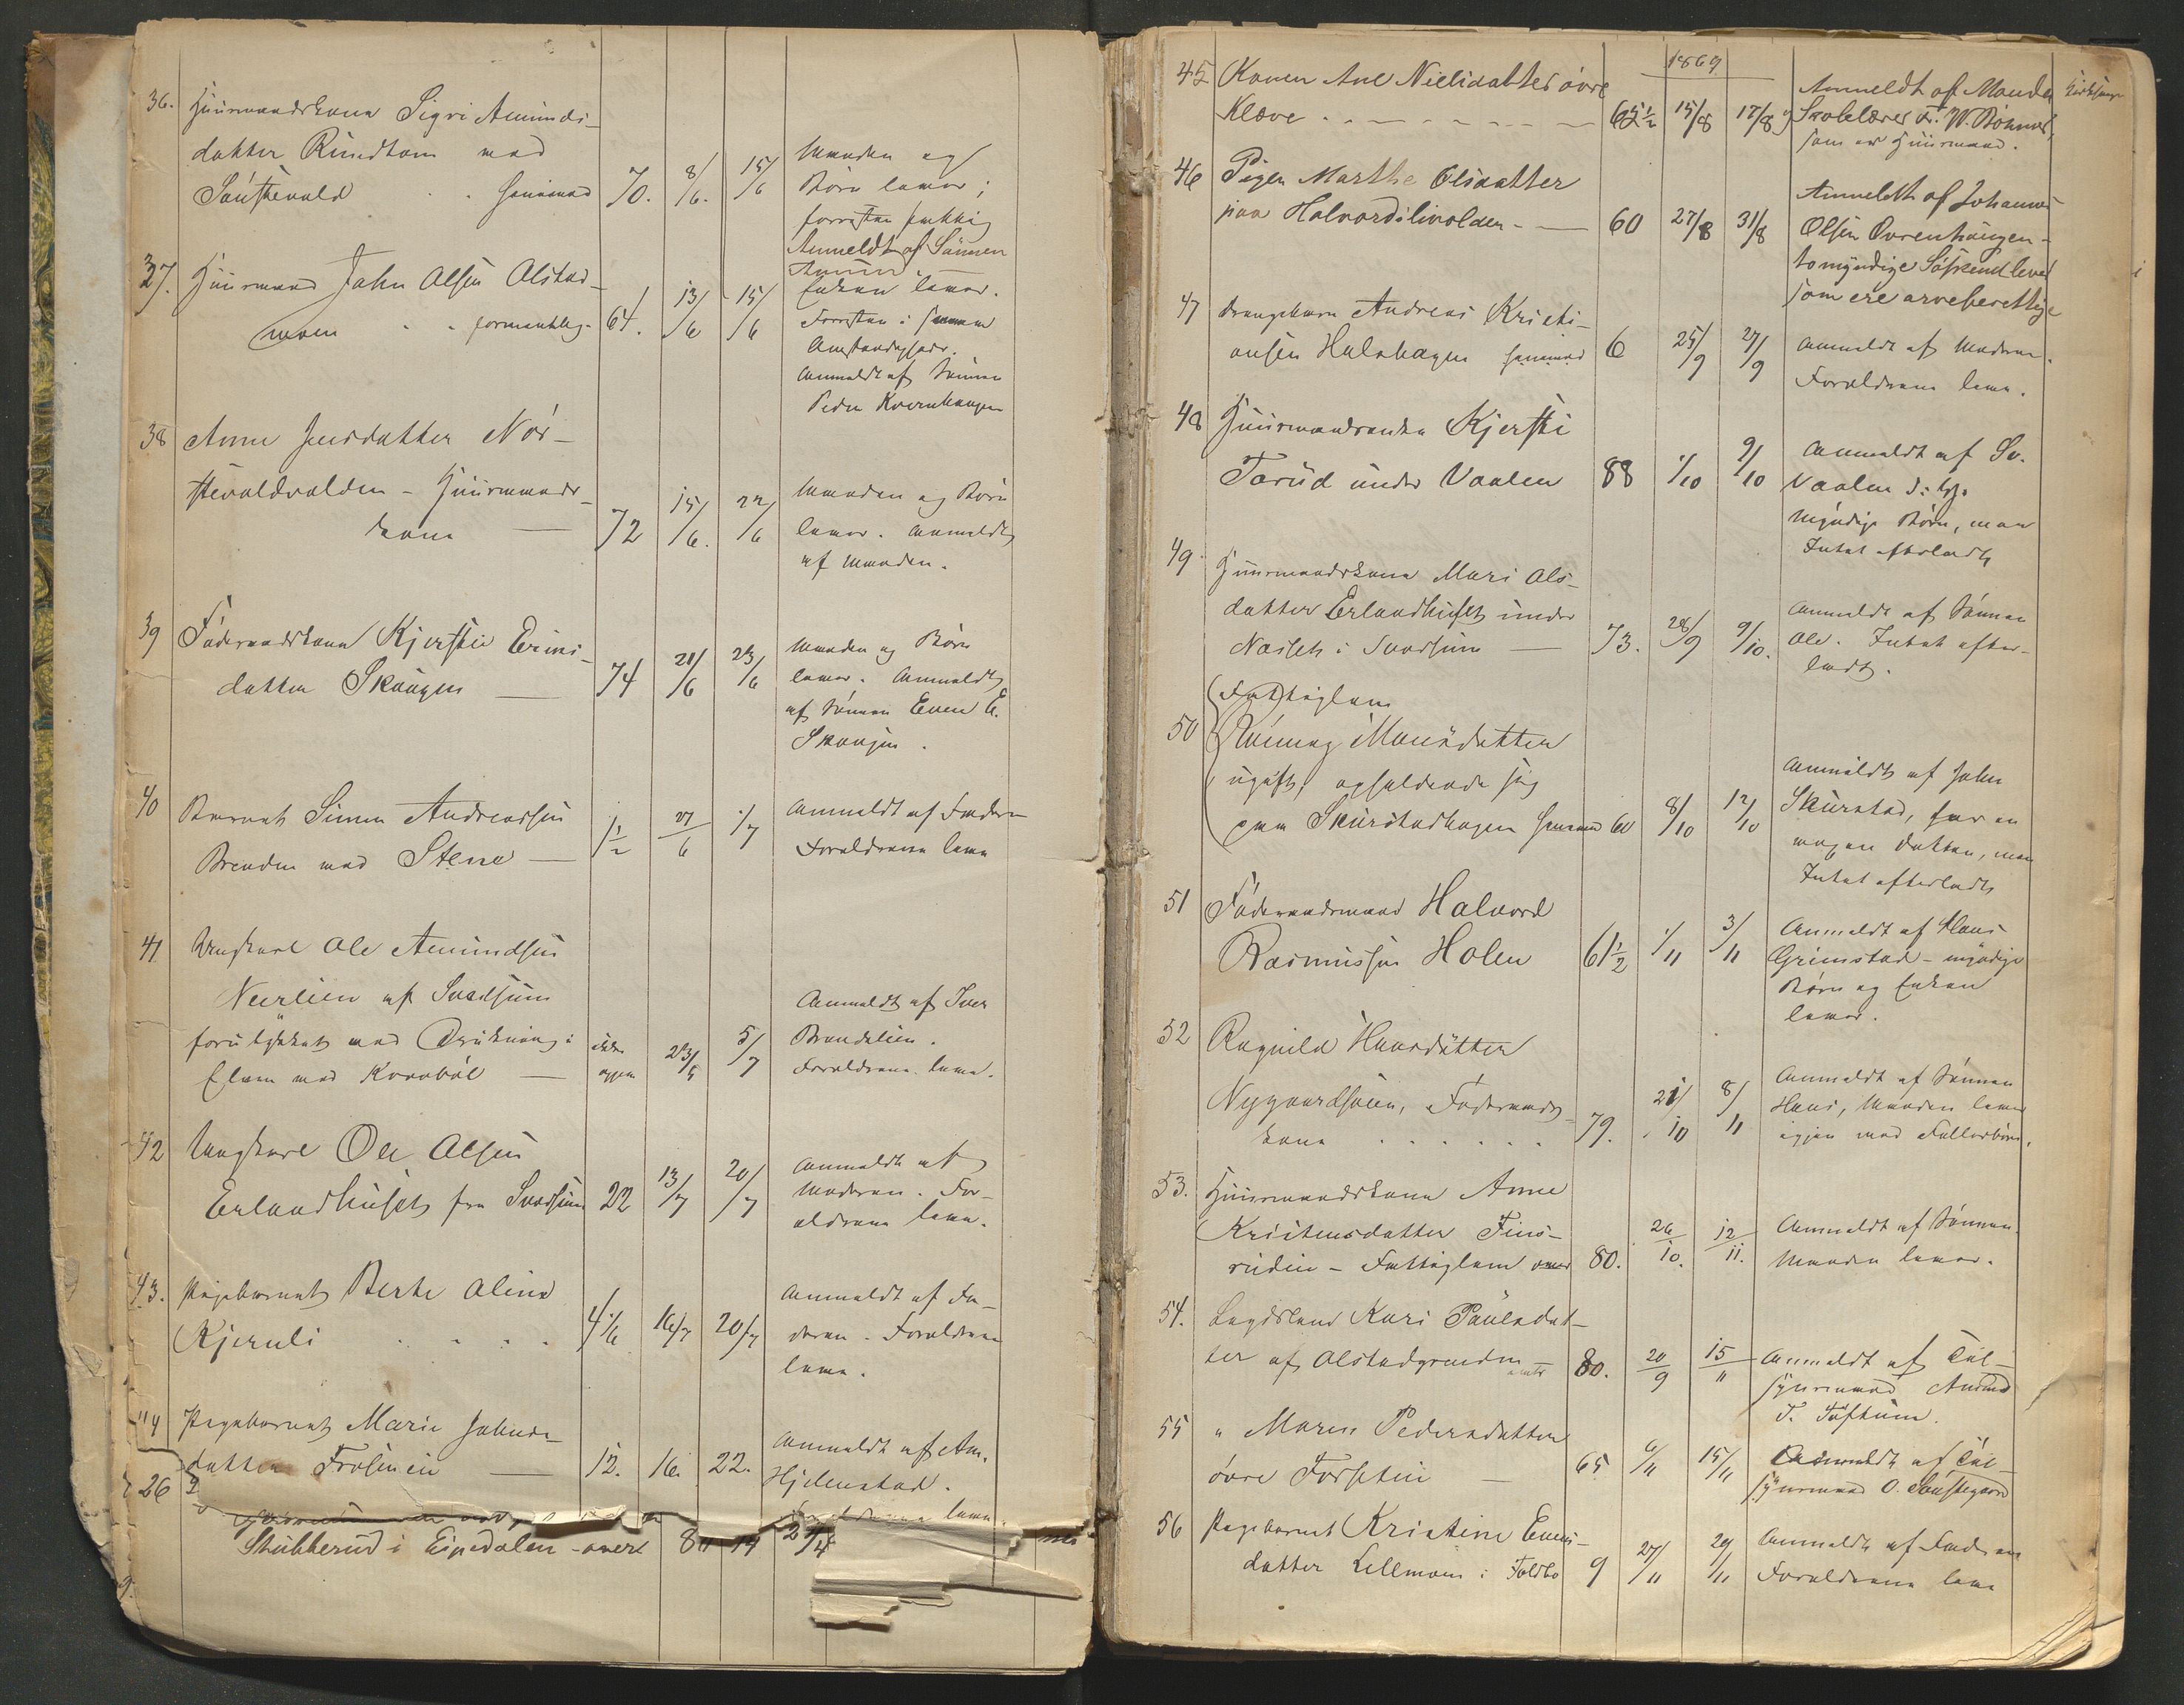 36. Huusmandskone Sigri Amunds-
datter Rundtom ved
Sönstevold . formenod 70. 8/6. 15/6
Manden og
Börn lever;
forresten fattig
Anmeldt af Sönnen
37. Huusmand John Olsen Olstad-
moen . . formentlig 64. 13/6 15/6
Enken lever.
Forresten i samme
Omstændigheder.
Anmeldt af Sönnen
Peder Kvernhaugen
38 Anne Jensdatter Nör-
stevoldvolden - Huusmands-
kone — 72 15/6. 22/6
Manden og Börn
lever. Anmeldt
af Manden.
39 Föderaadskone Kjersti Evens-
datter Skaugen — 74 21/6 23/6
Manden og Börn
lever. Anmeldt
af Sönnen Even E.
Skaugen.
40 Barnet Simen Andreassen
Brenden ved Stene — 1½ 27/6 1/7
Anmeldt af Faderen
Forældrene leve
41 Ungkarl Ole Amundsen
Neerlien af Svadsum
forulykket ved Drukning i
Elven ved Kvaböl — ikke
oppg. 23/5 5/7
Anmeldt af Iver
Brendelien.
Forældrene leve.
42 Ungkarl Ole Olsen
Erlandhuset fra Svadsum 22 13/7 20/7
Anmeldt af
Moderen. For-
ældrene leve.
43. Pigebarnet Berte Oline
Kjeruli . . . . 4 1/6 16/7 20/7
Anmeldt af Fa-
deren. Forældrene
leve.
44 Pigebarnet Marie Johans-
datter Frösmein — 12. 16. 22.
Anmeldt af Am.
Hjelmstad.
26
Stubberud i Espedalen - overt 80 14 27/4
1869
45 Konen Ane Nielsdatter övre
Kleve . - - - - - - — 65½ 15/8 17/8
Anmeldt af Manden
Skolelærer Fr. W. Böhmer,
som er Huusmand.
Kirkesanger
46 Pigen Marthe Olsdatter
paa Halvordslivolden - — 60 27/8 31/8
Anmeldt af Johannes
Olsen Ovrenhaugen -
to myndige Söskend lever
som ere arveberettige
47 Drengebarn Andreas Kristi-
ansen Holshagen formenod 6 25/9 27/9
Anmeldt af Moderen.
Forældrene leve.
48 Huusmandsenke Kjersti
Torud under Vaalen 88 1/10 9/10
Anmeldt af Sv.
Vaalen d: Hj.
Myndige Börn, men
Intet efterladt
49 Huusmandskone Mari Ols-
datter Erlandhuset under
Næset i Svadsum — 73. 28/9 9/10.
Anmeldt af Sönnen
Ole. Intet efter-
ladt.
Fattiglem
50 Rönnog Monsdatter
ugift, opholdende sig
paa Skurstadhagen formenod 60 8/10 12/10
Anmeldt af John
Skurstad, har en
voxen Datter, men
Intet efterladt
51 Föderaadsmand Halvord
Rasmussen Holen 61½ 1/11 3/11
Anmeldt af Hans
Grimstad - myndige
Börn og Enken
lever.
52 Ragnild Hansdatter
Nygaardsöien, Föderaads-
kone . . . . . . 79. 21/10 8/11
Anmeldt af Sönnen
Hans, Manden lever
igjen med Fællesbörn.
53. Huusmandskone Anne
Kristensdatter Fins-
rudin - Fattiglem 80. 26/10. 12/11.
Anmeldt af Sönnen.
Manden lever.
54. Lægdslem Kari Paulsdat-
ter af Olstadgrenden 80. 20/9 15/11
Anmeldt af Til-
synsmand Amund
T. Toftum.
55 " Maren Pedersdatter
övre Forsetin — 65 6/11 15/11
Anmeldt af Til-
synsmand O. Sönstegaard
56 Pigebarnet Kristine Evens-
datter Lillemoen i Foldbo 9 27/11 29/11
Anmeldt af Faderen
Forældrene leve